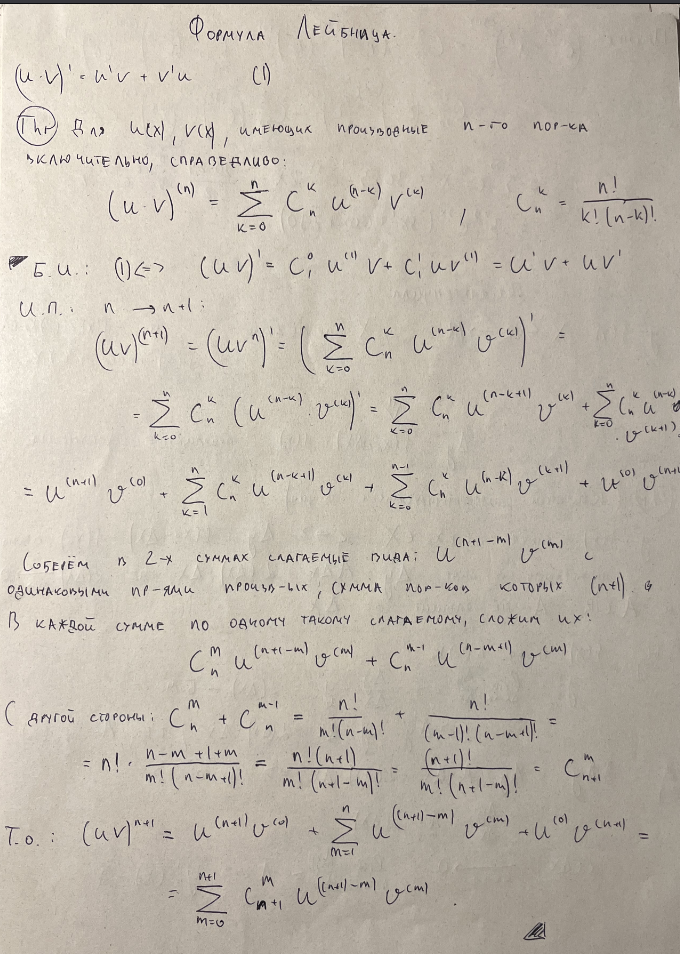 Формула Лейбница.
(u·v)' = u'v + v'u (1)
Thr Для u(x), v(x), имеющих производные n-го пор-ка
включительно, справедливо:
(u·v)^(n) = ∑_{k=0}^{n} C_n^k u^(n-k) v^(k) , C_n^k = n!/(k!(n-k)!)
Б.И.: (1) <=> (uv)' = C_1^0 u^(1) v + C_1^1 u v^(1) = u'v + uv'
И.П.: n → n+1:
(uv)^(n+1) = (uv^n)' = (∑_{k=0}^{n} C_n^k u^(n-k) v^(k))' =
= ∑_{k=0}^{n} C_n^k (u^(n-k) · v^(k))' = ∑_{k=0}^{n} C_n^k u^(n-k+1) v^(k) + ∑_{k=0}^{n} C_n^k u^(n-k)
· v^(k+1)
= u^(n+1) v^(0) + ∑_{k=1}^{n} C_n^k u^(n-k+1) v^(k) + ∑_{k=0}^{n-1} C_n^k u^(n-k) v^(k+1) + u^(0) v^(n+1
Соберём в 2-х суммах слагаемые вида: u^(n+1-m) v^(m) с
одинаковыми пр-ями произв-ых, сумма пор-ков которых (n+1).
В каждой сумме по одному такому слагаемому, сложим их:
C_n^m u^(n+1-m) v^(m) + C_n^{m-1} u^(n-m+1) v^(m)
С другой стороны: C_n^m + C_n^{m-1} = n!/(m!(n-m)!) + n!/((m-1)!(n-m+1)!) =
= n! · (n-m+1+m)/(m!(n-m+1)!) = n!(n+1)/(m!(n+1-m)!) = (n+1)!/(m!(n+1-m)!) = C_{n+1}^m
Т.о.: (uv)^{n+1} = u^(n+1) v^(0) + ∑_{m=1}^{n} u^((n+1)-m) v^(m) + u^(0) v^(n+1) =
= ∑_{m=0}^{n+1} C_{n+1}^m u^((n+1)-m) v^(m) .